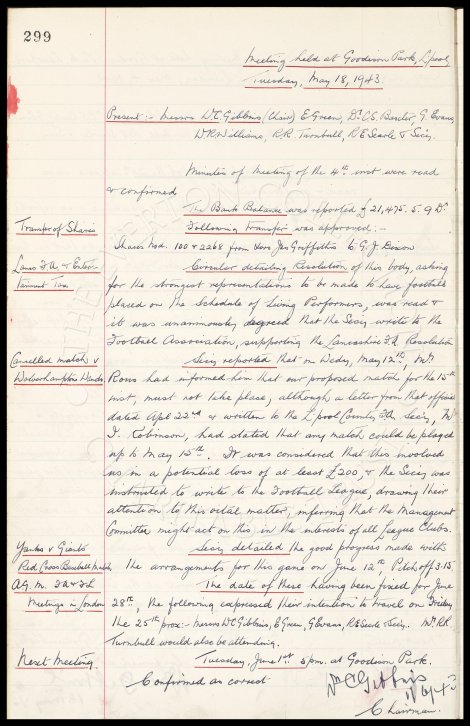 299
Meeting held at Goodison Park, L'pool
Tuesday, May 18, 1943.
Present :- Messrs W.C. Gibbins (Chair) E Green, Dr C.S. Baxter, G. Evans,
W.R. Williams, R.R. Turnbull, R E Searle & Secy.
Minutes of Meeting of the 4th inst were read
& confirmed
The Bank Balance was reported £21,475. 5. 9 Dr
Transfer of Shares
Following transfer was approved :-
Shares Nod. 100 & 2268 from Jas Griffiths to G. J.
Lancs F.A & Enter-
tainment Tax
Circular detailing Resolution of this body, asking
for the strongest representations to be made to have football
placed on the Schedule of Living Performers, was read &
it was unanimously degreed that the Secy write to the
Football Association, supporting the Lancashire F.A Resolution
Cancelled match v
Wolverhampton Wands
Secy reported that on Wedy, May 12th, Mr
Rous had informed him that our proposed match for the 15th
inst, must not take place, although a letter from that office
dated Apl 22nd & written to the L'pool County F.A. Secy, Mr
J. Robinson, had stated that any match could be played
up to May 15th. It was considered that this involved
us in a potential loss of at least £200, & the Secy was
instructed to write to the Football League, drawing their
attention to this vital matter, inferring that the Management
Committee might act on this in the interests of all League Clubs.
Yanks v Giants
Red Cross Baseball Match
Secy detailed the good progress made with
the arrangements for this game on June 12th Pitch off 3.15.
A.G.M. F.A & F.L
Meetings in London
The date of these having been fixed for June
28th, the following expressed their intention to travel on Friday
the 25th prox:- Messrs W C Gibbins, E Green, G Evans, R E Searle & Secy. Mr R.R.
Turnbull would also be attending.
Next Meeting
Tuesday, June 1st 3 pm. at Goodison Park.
Confirmed as correct
W C Gibbins
Chairman.